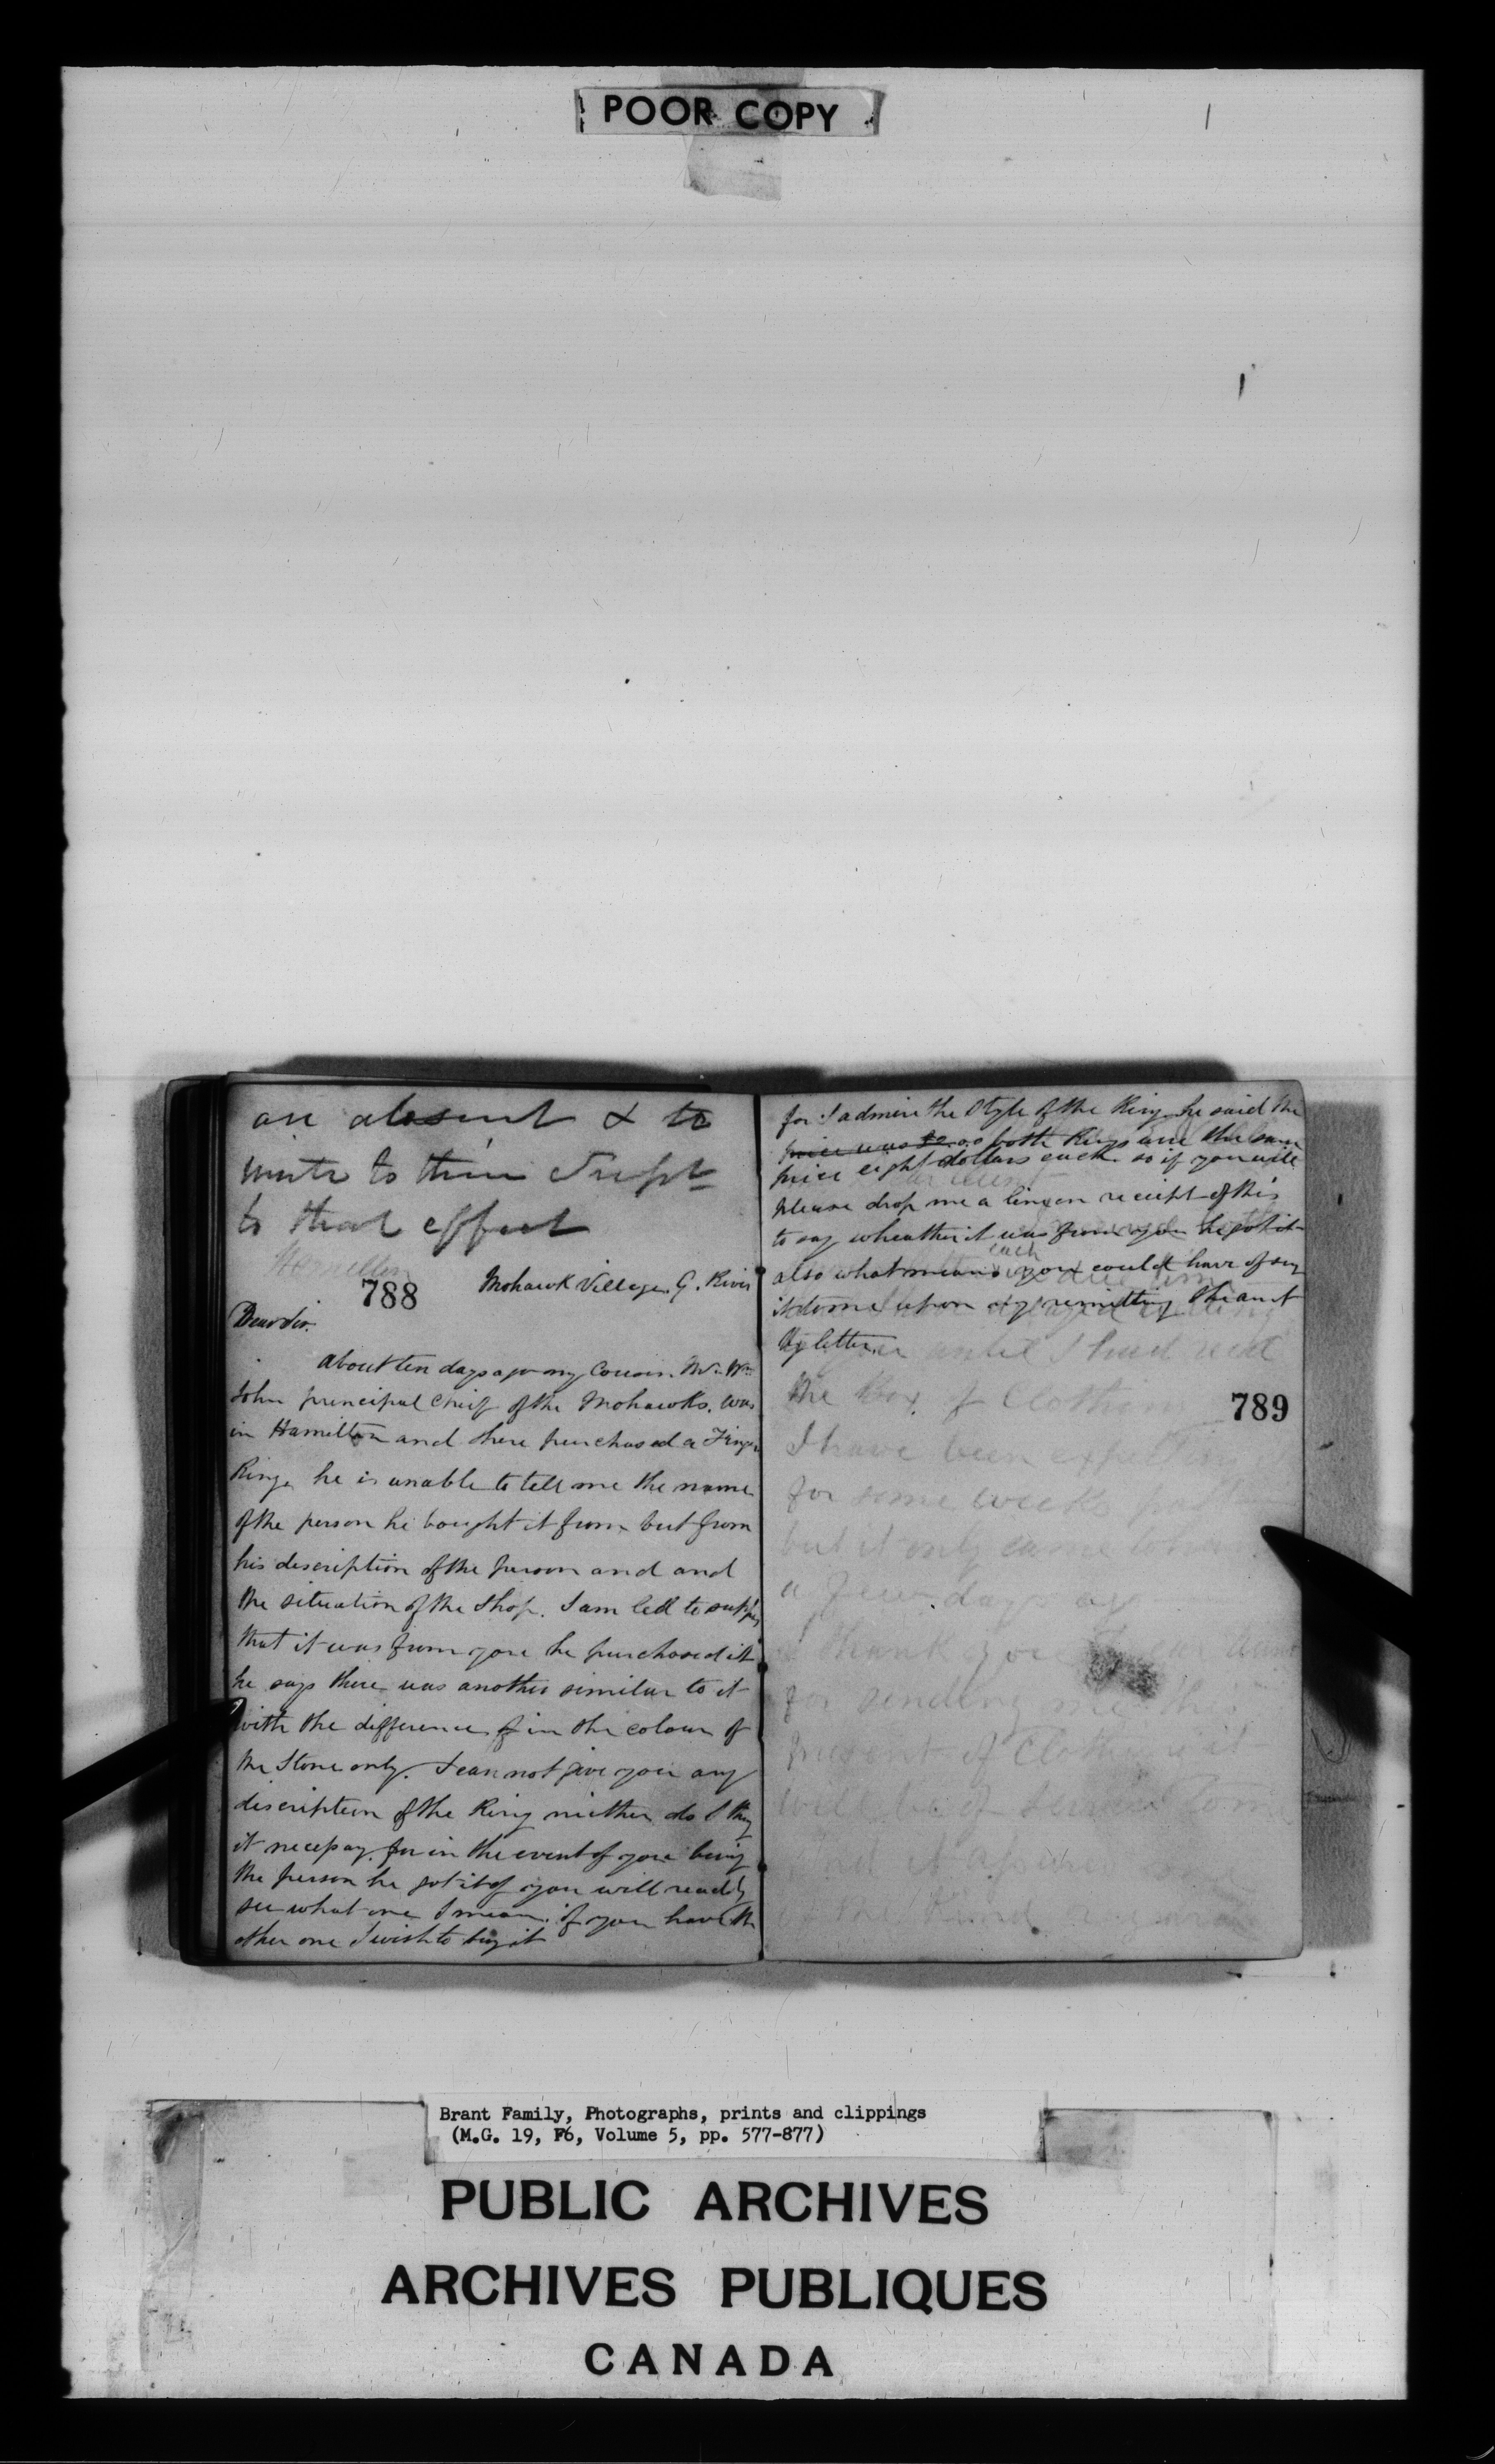 POOR COPY
are absent & to
write to their Supt
to that effect
788
Mohawk Village. G. River
Dear Sir.
About ten days ago my Cousin. Mr. Wm
John principal Chief of the Mohawks. was
in Hamilton and there purchased a Finger
Ring, he is unable to tell me the name
of the person he bought it from but from
his description of the person and and
the situation of the Shop. I am led to
that it was from you he purchased it
he says there was another similar to it
with the difference in the colour of
the Stone only. I can not give you any
discription of the Ring niether do I
it necessay. for in the event of you being
the person he got it of you will readily
see what one I mean. if you have the
other one I wish to buy it
for I admire the Style of the Ring. he said the
price was both Rings were the same
price eight dollars each. so if you will
please drop me a line on receipt of this
to say wheather it was from you he got it
each
also what means you could have of
it done upon my remitting the amt
by letter.
until I had recd
the Box of Clothing
789
I have been expecting
for some weeks past
but it only came
a few days ago
I thank you
for sending me this
present of Clothes
will be of
Brant Family, Photographs, prints and clippings
(M.G. 19, F6, Volume 5, pp. 577-877)
PUBLIC ARCHIVES
ARCHIVES PUBLIQUES
CANADA